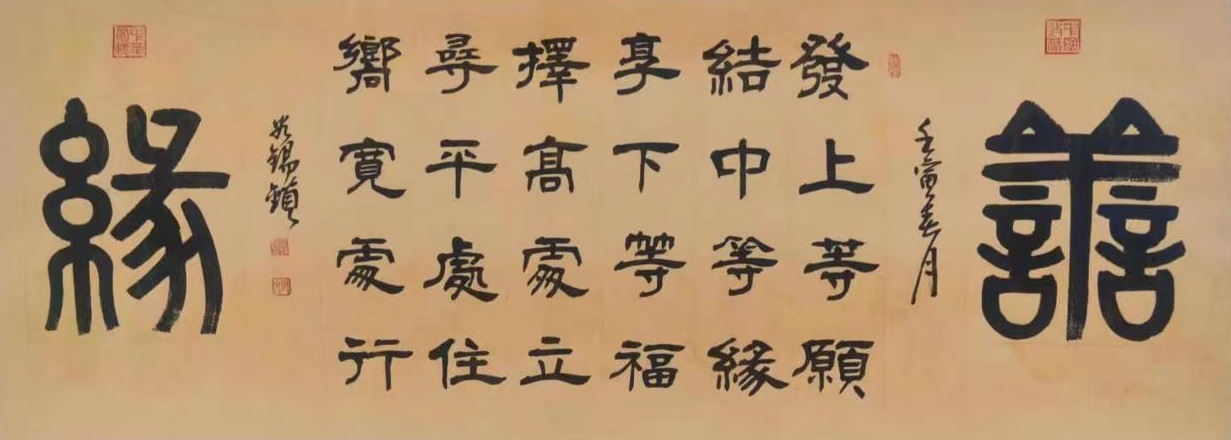 譱
壬寅春月
發上等願
結中等緣
享下等福
擇高處立
尋平處住
嚮寬處行
錫鎖
緣